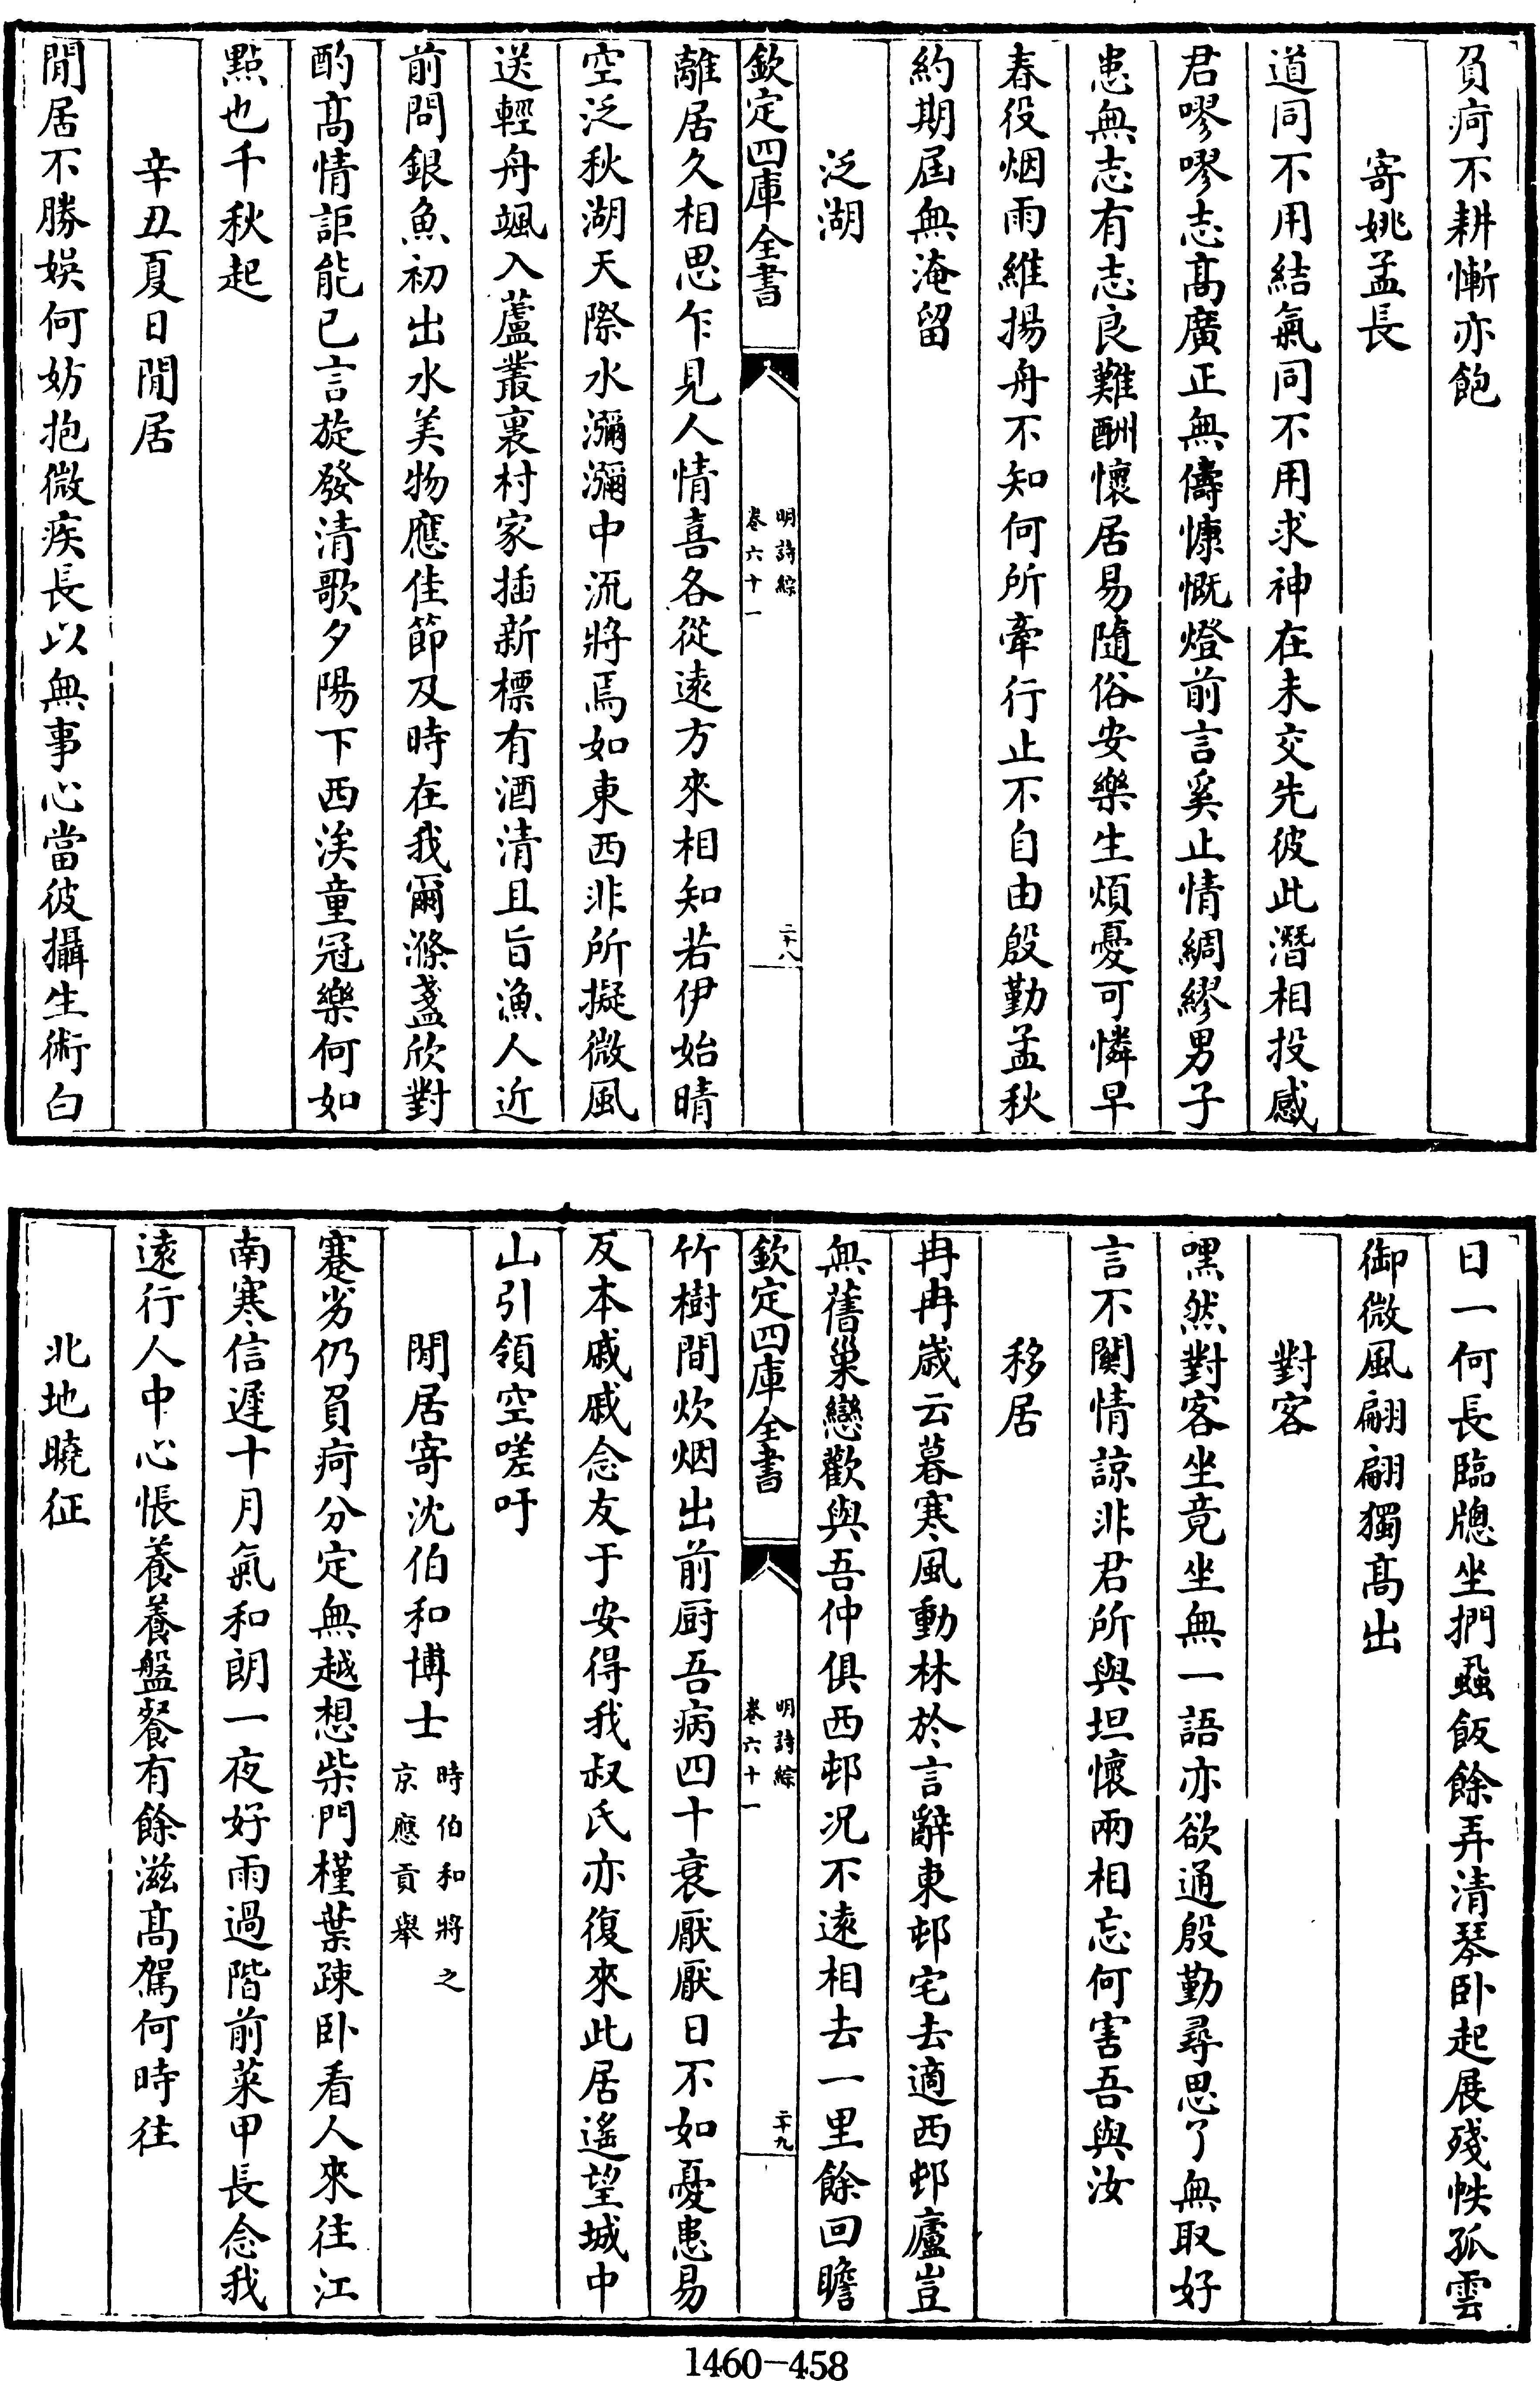 負疴不耕慚亦飽
寄姚孟長
道同不用結氣同不用求神在未交先彼此潛相投感
君嘐嘐志高廣正無儔慷慨燈前言奚止情綢繆男子
患無志有志良難酬懷居易隨俗安樂生煩憂可憐早
春役烟雨維揚舟不知何所牽行止不自由殷勤孟秋
約期屆無淹留
泛湖
欽定四庫全書
明詩綜
卷六十一
二十八
離居久相思乍見人情喜各從遠方來相知若伊始晴
空泛秋湖天際水瀰瀰中流將焉如東西非所擬微風
送輕舟颯入蘆叢裏村家插新標有酒清且旨漁人近
前問銀魚初出水美物應佳節及時在我爾滌盞欣對
酌高情詎能已言旋發清歌夕陽下西涘童冠樂何如
點也千秋起
辛丑夏日閒居
閒居不勝娛何妨抱微疾長以無事心當彼攝生術白
日一何長臨牕坐捫蝨飯餘弄清琴卧起展殘帙孤雲
御微風翩翩獨高出
對客
嘿然對客坐竟坐無一語亦欲通殷勤尋思了無取好
言不關情諒非君所與坦懷兩相忘何害吾與汝
移居
冉冉歲云暮寒風動林於言辭東邨宅去適西邨廬豈
無舊巢戀歡與吾仲俱西邨况不遠相去一里餘回瞻
欽定四庫全書
明詩綜
卷六十一
二十九
竹樹間炊烟出前厨吾病四十衰厭厭日不如憂患易
反本戚戚念友于安得我叔氏亦復來此居遙望城中
山引領空嗟吁
閒居寄沈伯和博士
時伯和將之
京應貢舉
蹇劣仍負疴分定無越想柴門槿葉疎卧看人來往江
南寒信遲十月氣和朗一夜好雨過階前菜甲長念我
遠行人中心悵養養盤餐有餘滋高駕何時往
北地曉征
1460-458